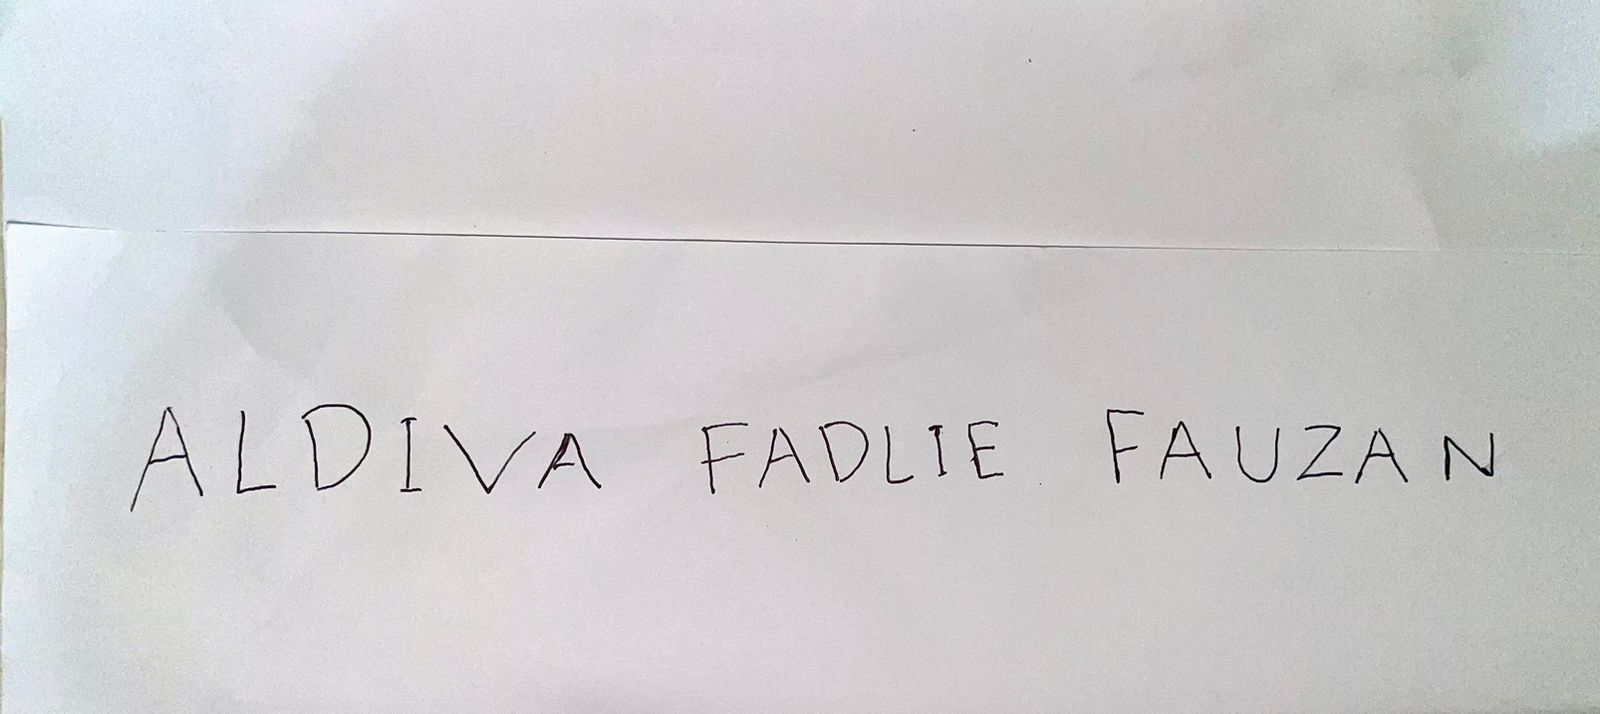 ALDIVA FADLIE FAUZAN